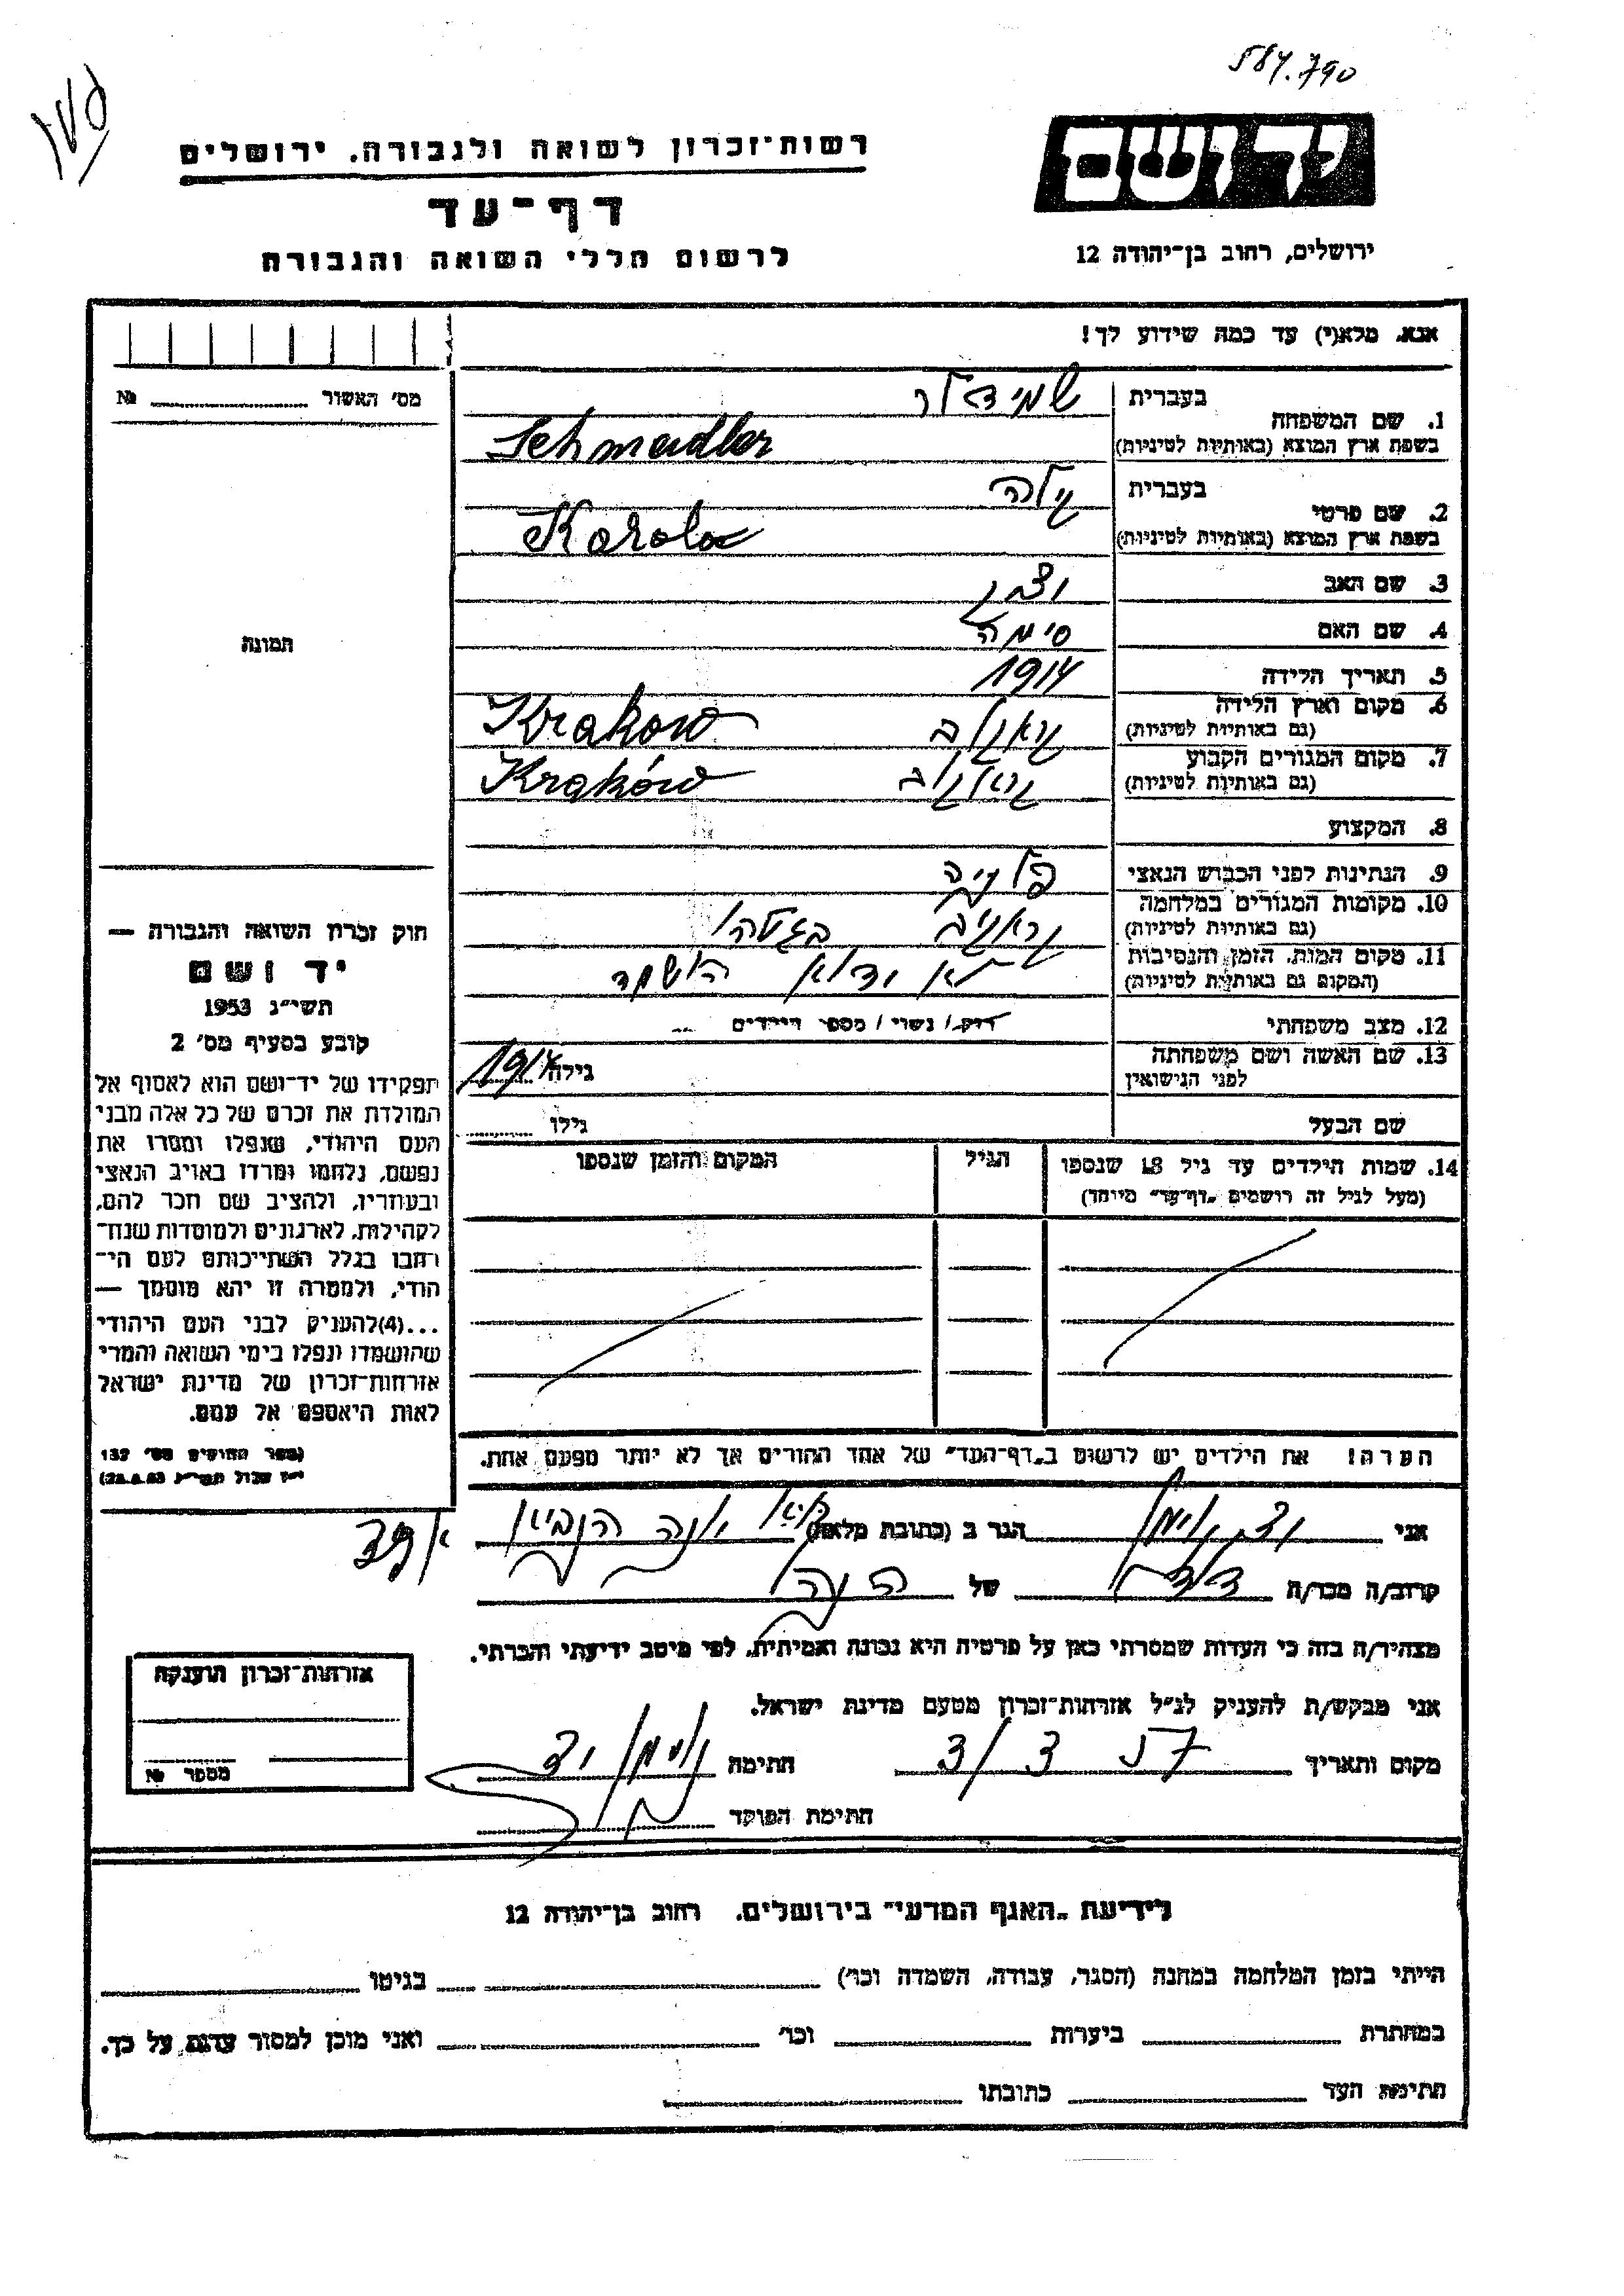 584.790
יד ושם
רשות־זכרון לשואה ולגבורה, ירושלים
דף־עד
לרשום חללי השואה והגבורה
ירושלים, רחוב בן־יהודה 12
אנא, מלא(י) עד כמה שידוע לך!
מס' האשור № 
1. שם המשפחה
בעברית שמידלר
בשפת ארץ המוצא (באותיות לטיניות) Schmeidler
2. שם פרטי
בעברית
בשפת ארץ המוצא (באותיות לטיניות) Karola
3. שם האב
4. שם האם סימה
5. תאריך הלידה 1914
6. מקום וארץ הלידה
(גם באותיות לטיניות) קראקוב Krakow
7. מקום המגורים הקבוע
(גם באותיות לטיניות) קראקוב Kraków
8. המקצוע
9. הנתינות לפני הכבוש הנאצי פולניה
10. מקומות המגורים במלחמה
(גם באותיות לטיניות) קראקוב בגטו
11. מקום המות, הזמן והנסיבות
(המקום גם באותיות לטיניות) לא ידוע הושמד
12. מצב משפחתי רוק/ נשוי/ מספר הילדים
13. שם האשה ושם משפחתה
לפני הנישואין גילה 1914
שם הבעל גילו
14. שמות הילדים עד גיל 18 שנספו
(מעל לגיל זה רושמים "דף־עד" מיוחד)
הגיל
המקום והזמן שנספו
הערה! את הילדים יש לרשום ב"דף־העד" של אחד ההורים אך לא יותר מפעם אחת.
תמונה
חוק זכרון השואה והגבורה —
יד ושם
תשי"ג 1953
קובע בסעיף מס' 2
תפקידו של יד־ושם הוא לאסוף אל
המולדת את זכרם של כל אלה מבני
העם היהודי, שנפלו ומסרו את
נפשם, נלחמו ומרדו באויב הנאצי
ובעוזריו, ולהציב שם וזכר להם,
לקהילות, לארגונים ולמוסדות שנח־
רבו בגלל השתייכותם לעם הי־
הודי, ולמטרה זו יהא מוסמך —
...(4) להעניק לבני העם היהודי
שהושמדו ונפלו בימי השואה והמרי
אזרחות־זכרון של מדינת ישראל
לאות היאספם אל עמם.
(ספר החוקים מס' 132
אני הגר ב (כתובת מלאה) יונה הנביא
קרוב/ה מכר/ה דוד של
מצהיר/ה בזה כי העדות שמסרתי כאן על פרטיה היא נכונה ואמיתית, לפי מיטב ידיעתי והכרתי.
אני מבקש/ת להעניק לנ"ל אזרחות־זכרון מטעם מדינת ישראל.
מקום ותאריך 3/3 57 חתימה
חתימת הפוקד
אזרחות־זכרון הוענקה
מספר №
לידיעת "האגף המדעי" בירושלים, רחוב בן־יהודה 12
הייתי בזמן המלחמה במחנה (הסגר, עבודה, השמדה וכו') בגיטו
במחתרת ביערות וכו' ואני מוכן למסור עדות על כך.
חתימת העד כתובתו